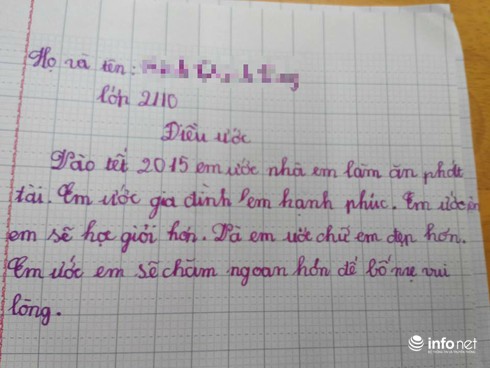 Họ và tên:
lớp 2/10
Điều ước
Vào tết 2015 em ước nhà em làm ăn phát
tài. Em ước gia đình em hạnh phúc. Em ước
em sẽ học giỏi hơn. Và em ước chữ em đẹp hơn.
Em ước em sẽ chăm ngoan hơn để bố mẹ vui
lòng.
infonet